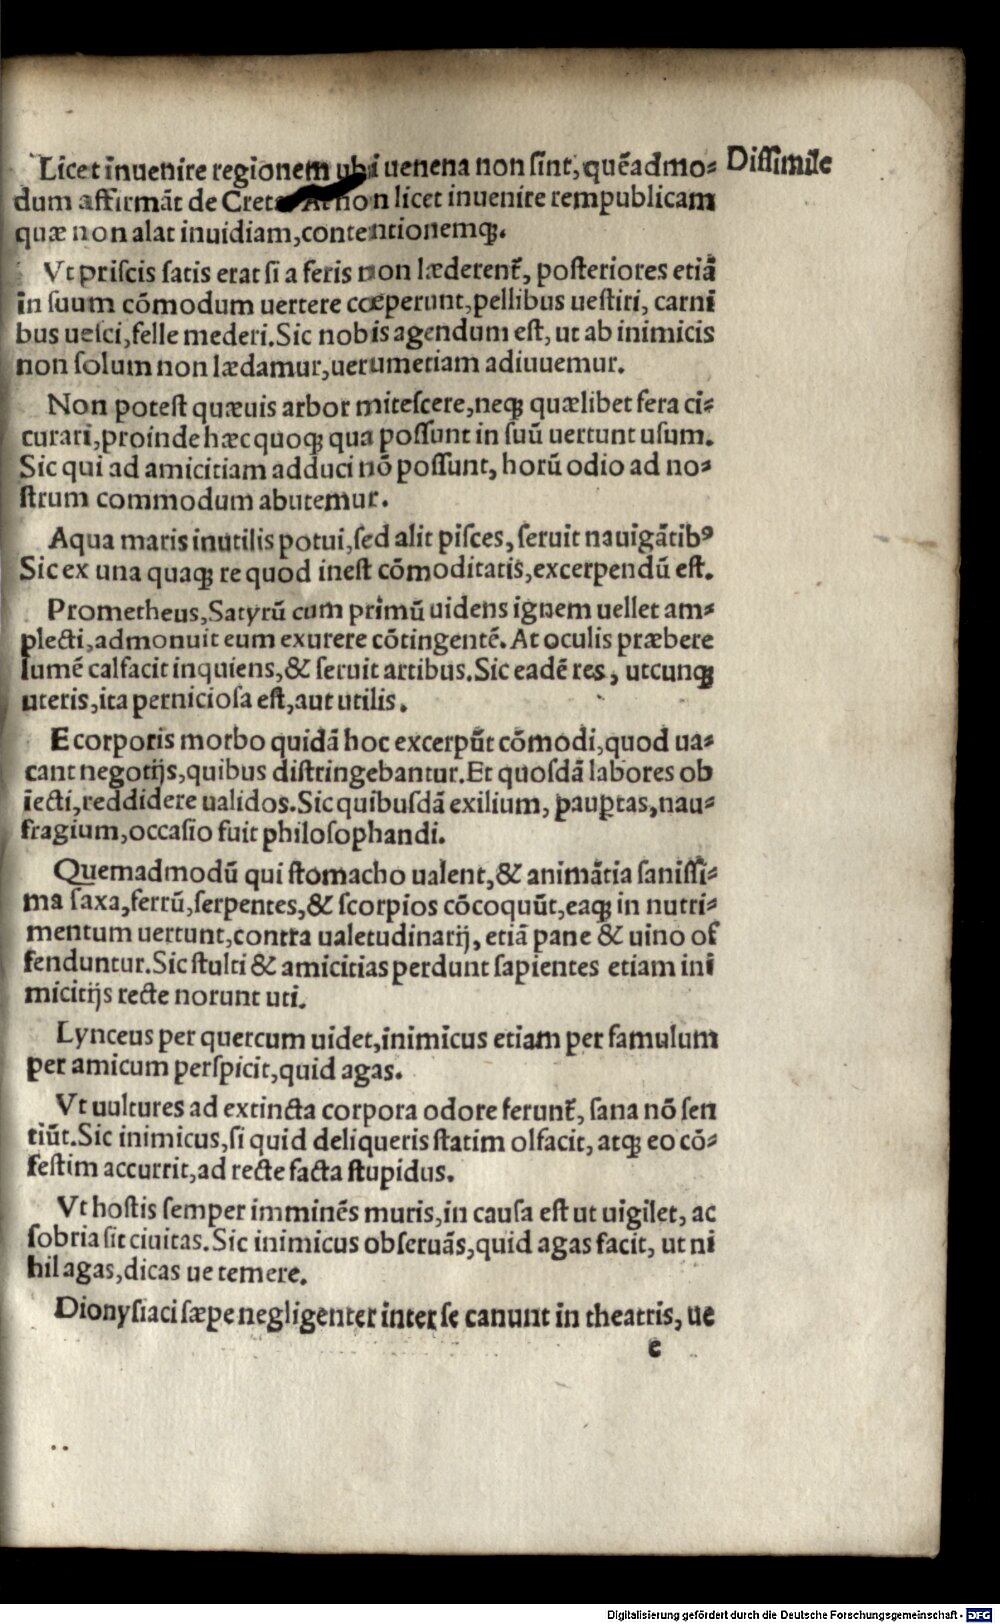 Licet inuenire regionem ubi uenena non ſint, quẽadmo⸗
Diſſimile
dum affirmãt de Creta. At non licet inuenire rempublicam
quæ non alat inuidiam,contentionemꝗꝫ.
Vt priſcis ſatis erat ſi a feris non læderent᷑, poſteriores etiã
in ſuum cõmodum uertere cœperunt,pellibus ueſtiri, carni
bus ueſci,felle mederi.Sic nobis agendum eſt, ut ab inimicis
non ſolum non lædamur,uerumetiam adiuuemur.
Non poteſt quæuis arbor miteſcere,neꝗꝫ quælibet fera ci⸗
curari,proinde hæc quoꝗꝫ qua poſſunt in ſuũ uertunt uſum.
Sic qui ad amicitiam adduci nõ poſſunt, horũ odio ad no⸗
ſtrum commodum abutemur.
Aqua maris inutilis potui,ſed alit piſces, ſeruit nauigãtibꝰ
Sic ex una quaꝗꝫ re quod ineſt cõmoditatis,excerpendũ eſt.
Prometheus,Satyrũ cum primũ uidens ignem uellet am⸗
plecti,admonuit eum exurere cõtingentẽ. At oculis præbere
lumẽ calfacit inquiens,& ſeruit artibus.Sic eadẽ res, utcunꝗꝫ
uteris,ita pernicioſa eſt,aut utilis.
E corporis morbo quidã hoc excerpũt cõmodi,quod ua⸗
cant negotijs,quibus diſtringebantur.Et quoſdã labores ob
iecti,reddidere ualidos.Sic quibuſdã exilium, ꝑauꝑtas,nau⸗
fragium,occaſio fuit philoſophandi.
Quemadmodũ qui ſtomacho ualent,& animãtia ſaniſſi⸗
ma ſaxa,ferrũ,ſerpentes,& ſcorpios cõcoquũt,eaꝗꝫ in nutri⸗
mentum uertunt,contra ualetudinarij, etiã pane & uino of
fenduntur.Sic ſtulti & amicitias perdunt ſapientes etiam ini
micitijs recte norunt uti.
Lynceus per quercum uidet,inimicus etiam per famulum
per amicum perſpicit,quid agas.
Vt uultures ad extincta corpora odore ferunt᷑, ſana nõ ſen
tiũt.Sic inimicus,ſi quid deliqueris ſtatim olfacit, atꝗꝫ eo cõ⸗
feſtim accurrit,ad recte facta ſtupidus.
Vt hoſtis ſemper imminẽs muris,in cauſa eſt ut uigilet, ac
ſobria ſit ciuitas.Sic inimicus obſeruãs,quid agas facit, ut ni
hil agas,dicas ue temere.
Dionyſiaci ſæpe negligenter inter ſe canunt in theatris, ue
e
Digitalisierung gefördert durch die Deutsche Forschungsgemeinschaft - DFG